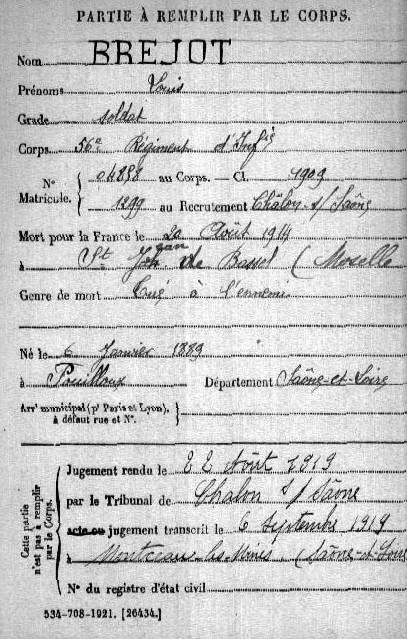 PARTIE À REMPLIR PAR LE CORPS.
Nom BREJOT
Prénoms Louis
Grade soldat
Corps 56e Régiment d'Infie
N° Matricule. 04858 au Corps. — Cl. 1909
1299 au Recrutement Châlon s/ Saône
Mort pour la France le 20 Août 1914
à St Johan de Bassel (Moselle
Genre de mort Tué à l'ennemi
Né le 6 Janvier 1889
à Pouilloux Département Saône-et-Loire
Arrt municipal (pr Paris et Lyon),
à défaut rue et N°.
Cette partie n'est pas à remplir par le Corps.
Jugement rendu le 22 Août 1919
par le Tribunal de Chalon s/ Saône
acte ou jugement transcrit le 6 Septembre 1919
à Montceau les Mines (Saône-et-Loire
N° du registre d'état civil
534-708-1921. [26434.]